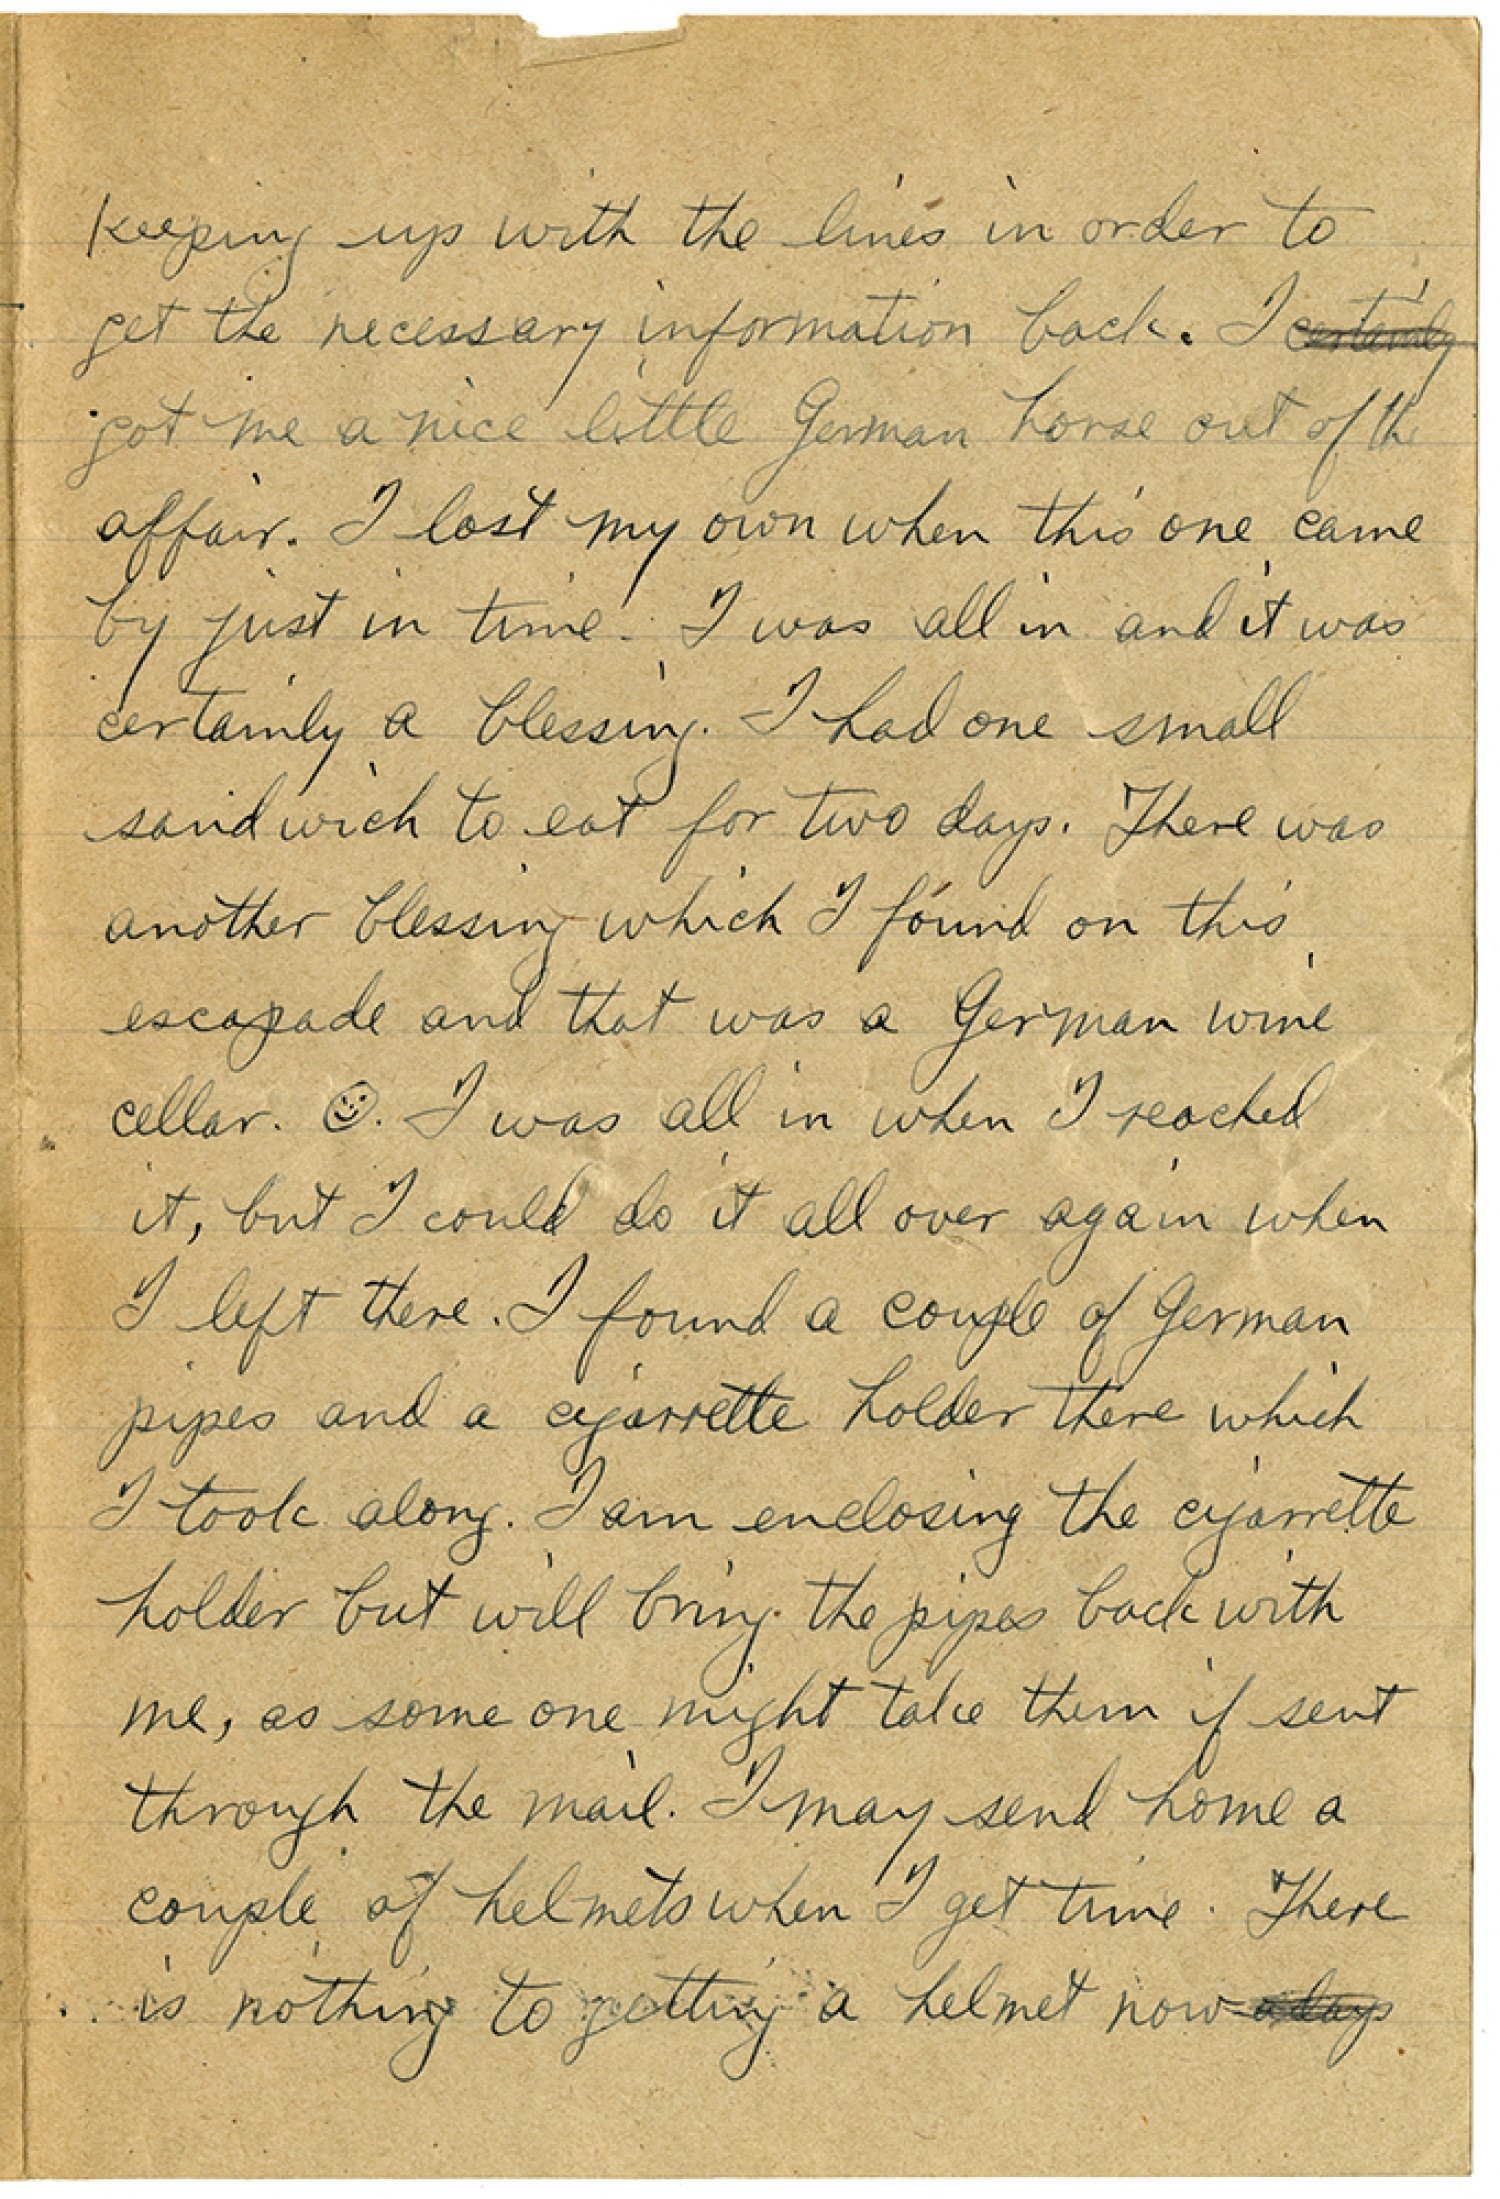 keeping up with the lines in order to
get the necessary information back. I certainly
got me a nice little German horse out of the
affair. I lost my own when this one came
by just in time. I was all in and it was
certainly a blessing. I had one small
sandwich to eat for two days. There was
another blessing which I found on this
escapade and that was a German wine
cellar. ☺. I was all in when I reached
it, but I could do it all over again when
I left there. I found a couple of German
pipes and a cigarrette holder there which
I took along. I am enclosing the cigarrette
holder but will bring the pipes back with
me, as some one might take them if sent
through the mail. I may send home a
couple of helmets when I get time. There
is nothing to getting a helmet now adays